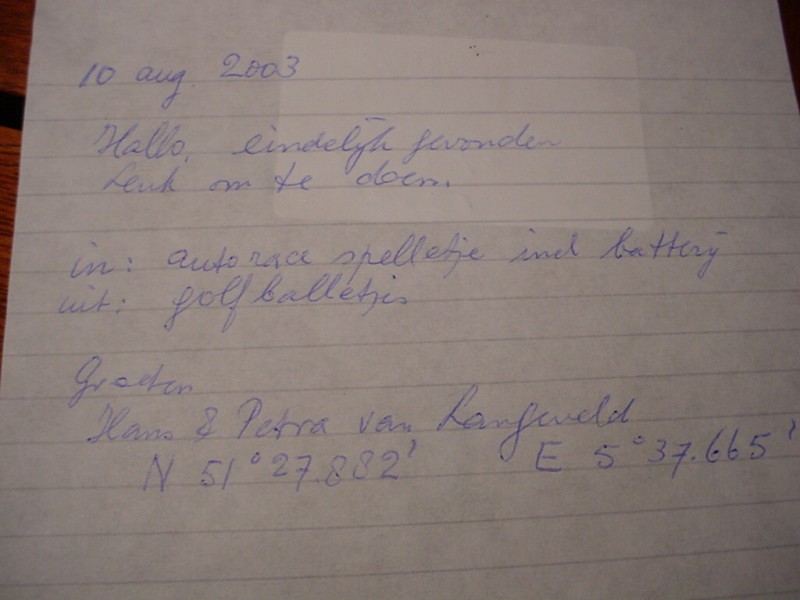 10 aug. 2003
Hallo, eindelijk gevonden
Leuk om te doen.
in: autorace spelletje incl battery
uit: golfballetjes
Groeten
Hans & Petra van Langeveld
N 51° 27.882' E 5° 37.665'